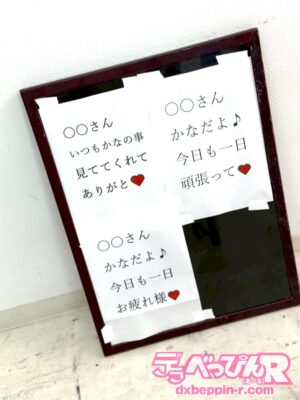 ○○さん
いつもかなの事
見ててくれて
ありがと♥
○○さん
かなだよ♪
今日も一日
頑張って♥
○○さん
かなだよ♪
今日も一日
お疲れ様♥
デラべっぴんR
dxbeppin-r.com